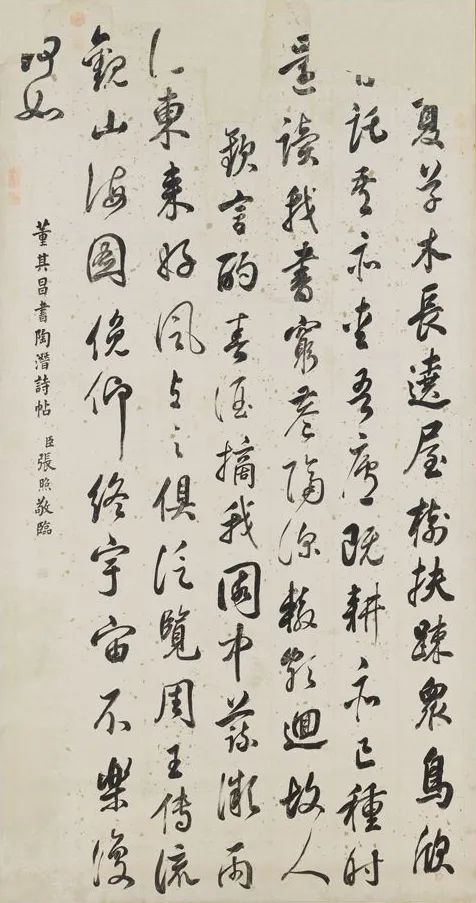 夏草木長遶屋樹扶踈眾鳥欣
託吾亦愛吾廬既耕亦已種時
還讀我書窮巷隔深轍頗迴故人
歡言酌春酒摘我園中蔬微雨
東來好風與之俱泛覽周王傳流
觀山海圖俛仰終宇宙不樂復
何如
董其昌書陶潛詩帖 臣張照敬臨